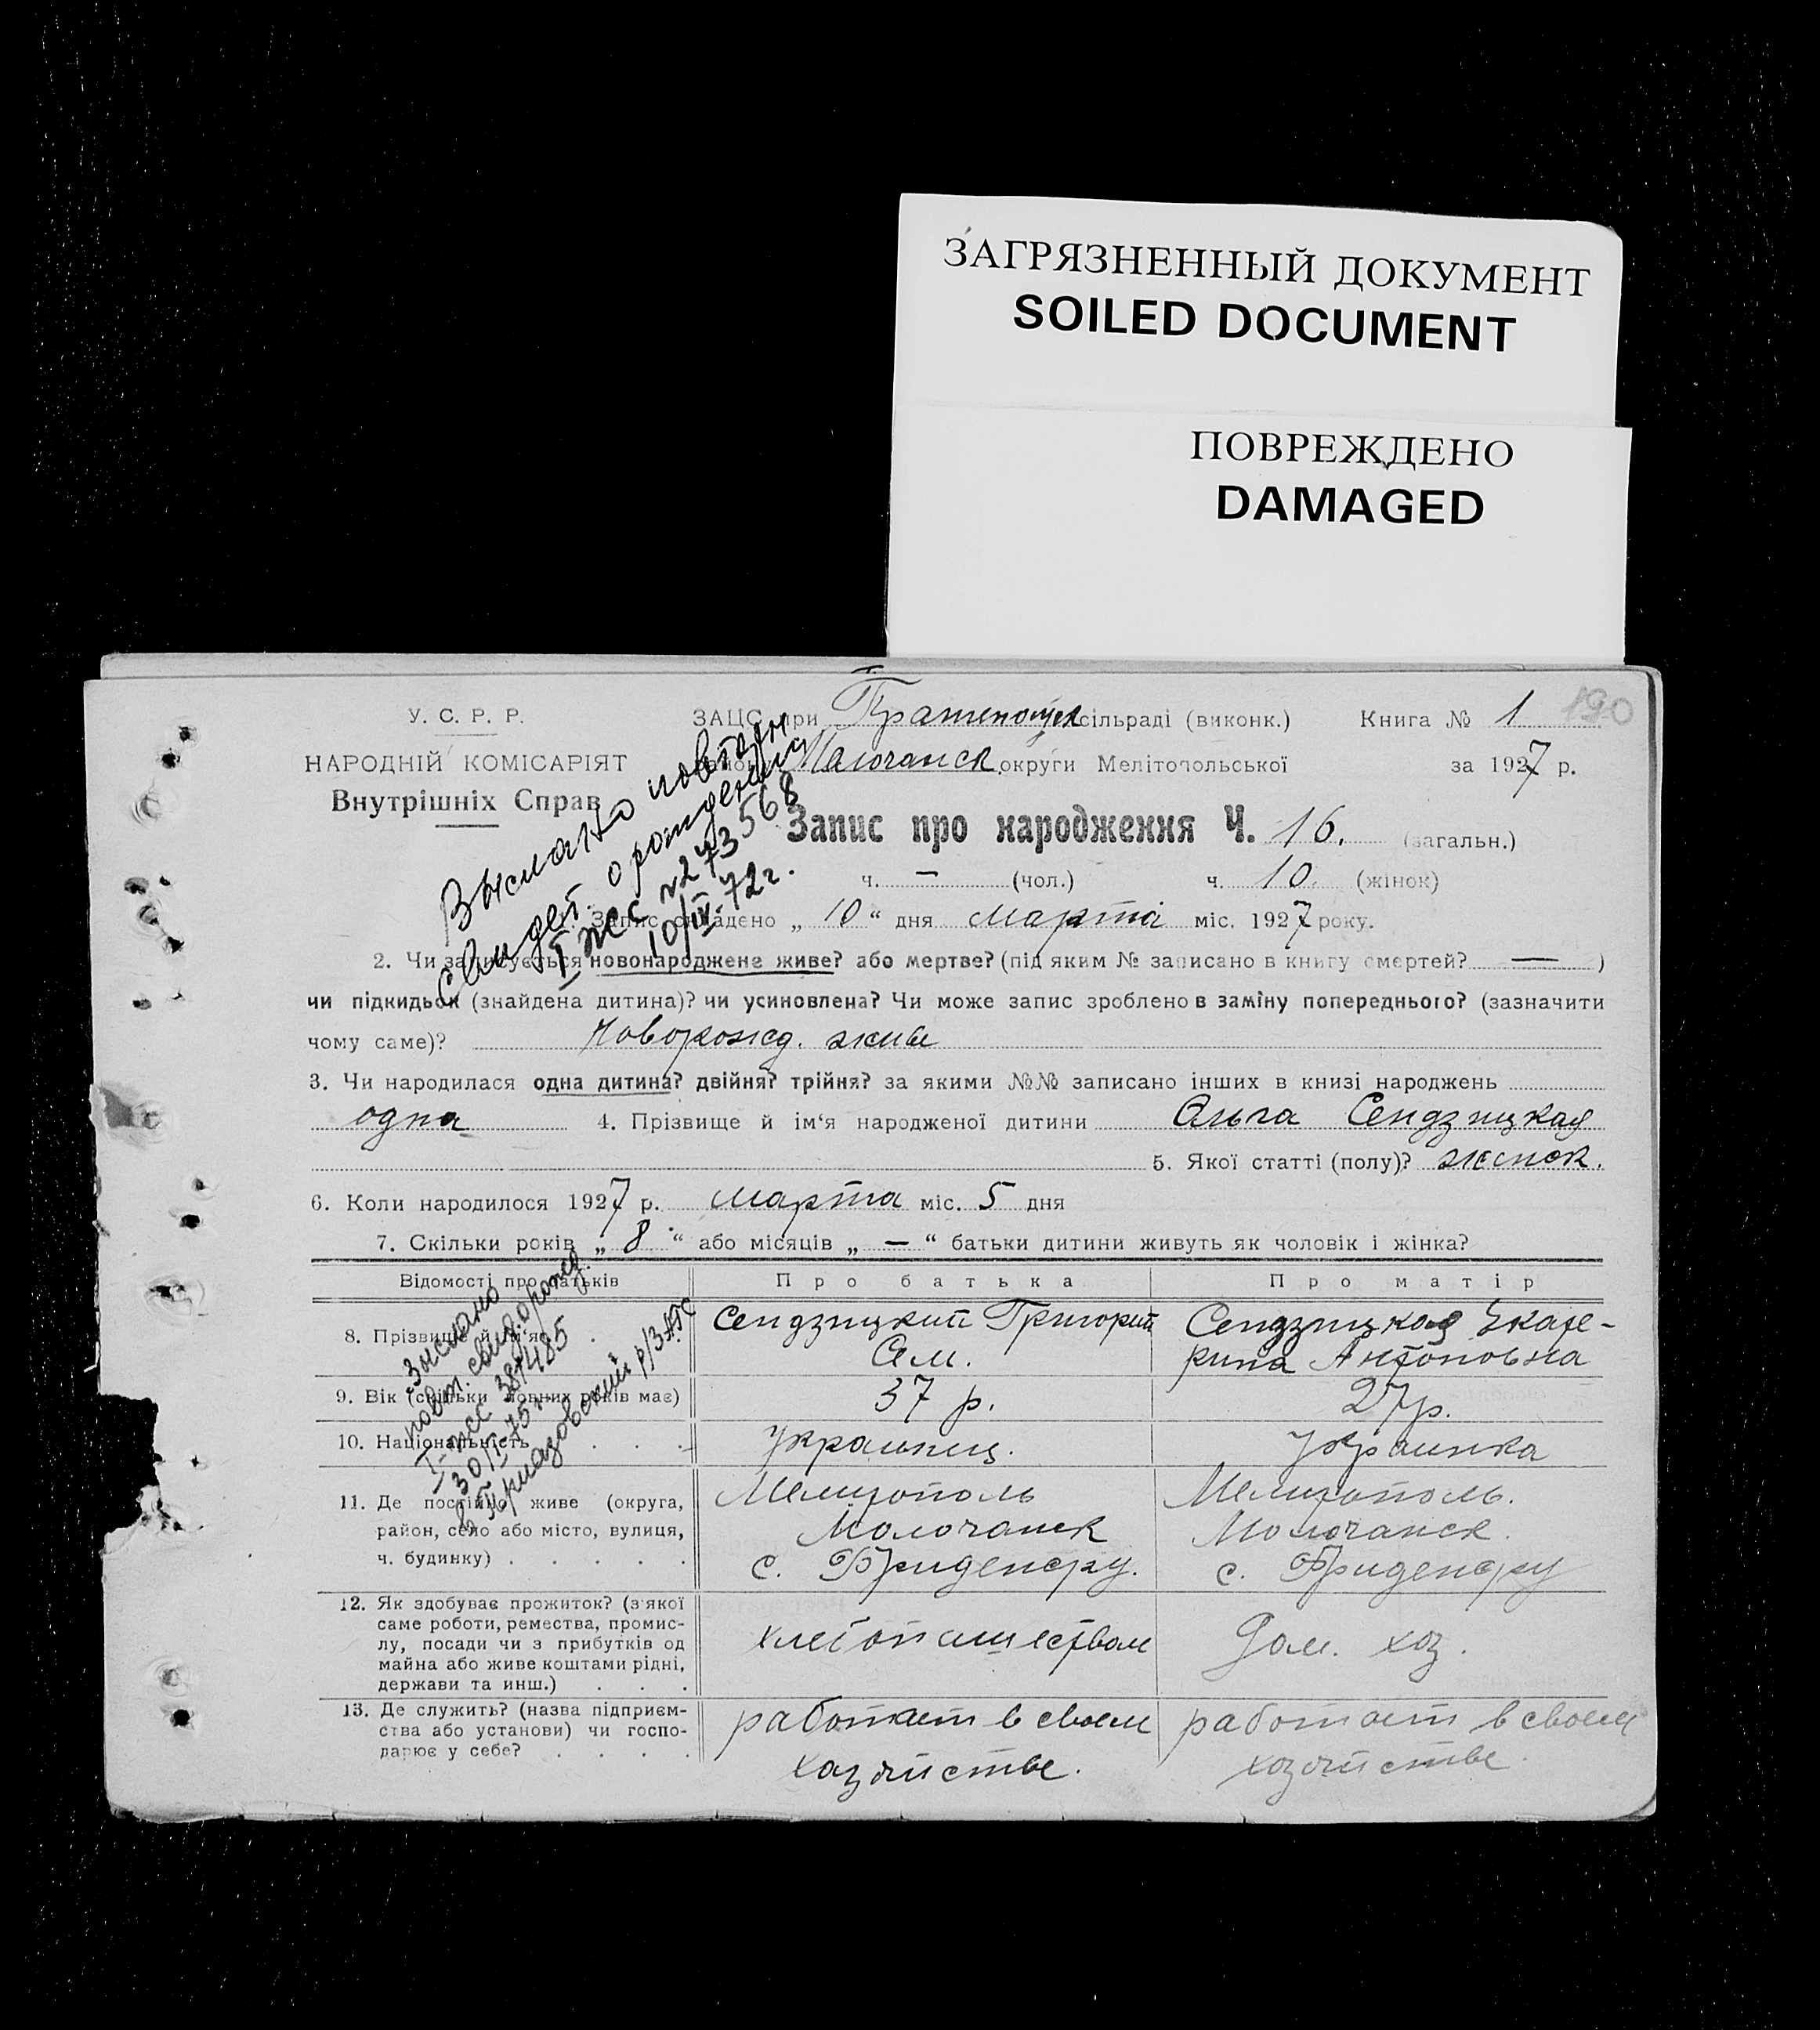 ЗАГРЯЗНЕННЫЙ ДОКУМЕНТ
SOILED DOCUMENT
ПОВРЕЖДЕНО
DAMAGED
190
У. С. Р. Р.
НАРОДНІЙ КОМІСАРІЯТ
Внутрішніх Справ
ЗАЦС при сільраді (виконк.) Книга № 1
Молочанск округи Мелітопольської за 1927 р.
Запис про народження Ч. 16. (загальн.)
ч. — (чол.) ч. 10. (жінок)
Выслано повторн
свидет. о рождении
I ЖС №273568
10/IV-72г.
Запис складено „ 10 “ дня марта міс. 1927 року.
2. Чи записується новонароджене живе? або мертве? (під яким № записано в книгу смертей? — )
чи підкидьок (знайдена дитина)? чи усиновлена? Чи може запис зроблено в заміну попереднього? (зазначити
чому саме)? Новорожд. живы
3. Чи народилася одна дитина? двійня? трійня? за якими №№ записано інших в книзі народжень
одна 4. Прізвище й ім‘я народженої дитини Ольга Сендзицкая
5. Якої статті (полу)? женск.
6. Коли народилося 1927 р. марта міс. 5 дня
7. Скільки років „ 8 “ або місяців „ — “ батьки дитини живуть як чоловік і жінка?
Відомості про батьків Про батька Про матір
8. Прізвище й ім‘я . Сендзицкий Григорий Сендзицкая Екате-
рина Антоновна
9. Вік (скільки повних років має) 37 р. 27 р.
10. Національність . . . . Украинец. Украинка
11. Де постійно живе (округа, район, село або місто, вулиця, ч. будинку) . . . . .
Мелитополь Мелитополь.
Молочанск Молочанск.
с. Фриденсру. с. Фриденсру
12. Як здобуває прожиток? (з якої
саме роботи, ремества, промис-
лу, посади чи з прибутків од
майна або живе коштами рідні,
держави та инш.) . . .
хлебопашеством Дом. хоз.
13. Де служить? (назва підприєм-
ства або установи) чи госпо-
дарює у себе? . . . .
работает в своем работает в своем
хозяйстве. хозяйстве.
Выслано
повт. свид. о рожд.
I-ЖС 387485
30/I-75г
в Приазовский р/ЗАГС